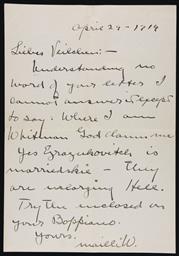 April 29 - 1919
Liebes Veilchen: —
Understanding no
word of your letter I
cannot answer it except
to say: Where I am
Whitman God damn me
Yes Ezrazukovitch is
marriedskie — They
are enlarging Hell.
Try the enclosed on
your Boppiano.
Yours.
W.